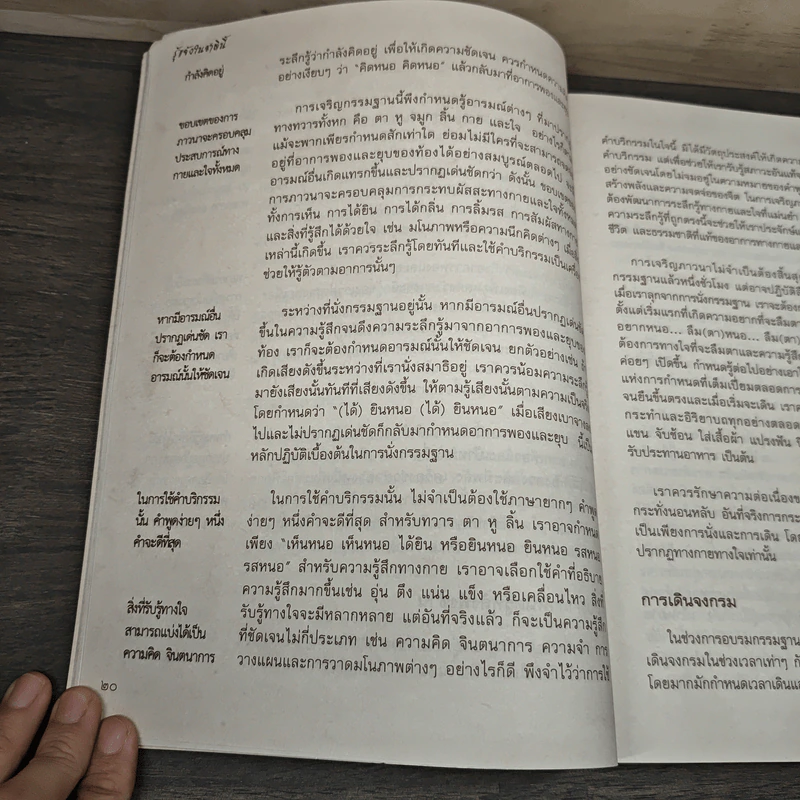 กำลังคิดอยู่
ระลึกรู้ว่ากำลังคิดอยู่ เพื่อให้เกิดความชัดเจน ควรกำหนดความ
อย่างเงียบๆ ว่า “คิดหนอ คิดหนอ” แล้วกลับมาที่อาการพองและ
ขอบเขตของการ
ภาวนาจะครอบคลุม
ประสบการณ์ทาง
กายและใจทั้งหมด
การเจริญกรรมฐานนี้พึงกำหนดรู้อารมณ์ต่างๆ ที่มา
ทางทวารทั้งหก คือ ตา หู จมูก ลิ้น กาย และใจ อย่างไร
แม้จะพากเพียรกำหนดสักเท่าใด ย่อมไม่มีใครที่จะสามารถ
อยู่ที่อาการพองและยุบของท้องได้อย่างสมบูรณ์ตลอดไป
อารมณ์อื่นเกิดแทรกขึ้นและปรากฏเด่นชัดกว่า ดังนั้น ขอบเขต
การภาวนาจะครอบคลุมการกระทบผัสสะทางกายและใจทั้ง
ทั้งการเห็น การได้ยิน การได้กลิ่น การลิ้มรส การสัมผัสทาง
และสิ่งที่รู้สึกได้ด้วยใจ เช่น มโนภาพหรือความนึกคิดต่างๆ
เหล่านี้เกิดขึ้น เราควรระลึกรู้โดยทันทีและใช้คำบริกรรมเป็น
ช่วยให้รู้ตัวตามอาการนั้นๆ
หากมีอารมณ์อื่น
ปรากฏเด่นชัด เรา
ก็จะต้องกำหนด
อารมณ์นั้นให้ชัดเจน
ระหว่างที่นั่งกรรมฐานอยู่นั้น หากมีอารมณ์อื่นปรากฏเด่น
ขึ้นในความรู้สึกจนดึงความระลึกรู้มาจากอาการพองและยุบ
ท้อง เราก็จะต้องกำหนดอารมณ์นั้นให้ชัดเจน ยกตัวอย่างเช่น
เกิดเสียงดังขึ้นระหว่างที่เรานั่งสมาธิอยู่ เราควรน้อมความระลึก
มายังเสียงนั้นทันทีที่เสียงดังขึ้น ให้ตามรู้เสียงนั้นตามความเป็น
โดยกำหนดว่า “(ได้) ยินหนอ (ได้) ยินหนอ” เมื่อเสียงเบาจาง
ไปและไม่ปรากฏเด่นชัดก็กลับมากำหนดอาการพองและยุบ นี้
หลักปฏิบัติเบื้องต้นในการนั่งกรรมฐาน
ในการใช้คำบริกรรม
นั้น คำพูดง่ายๆ หนึ่ง
คำจะดีที่สุด
ในการใช้คำบริกรรมนั้น ไม่จำเป็นต้องใช้ภาษายากๆ คำ
ง่ายๆ หนึ่งคำจะดีที่สุด สำหรับทวาร ตา หู ลิ้น เราอาจกำหนด
เพียง “เห็นหนอ เห็นหนอ ได้ยิน หรือยินหนอ ยินหนอ รสหนอ
รสหนอ” สำหรับความรู้สึกทางกาย เราอาจเลือกใช้คำที่อธิบาย
ความรู้สึกมากขึ้นเช่น อุ่น ตึง แน่น แข็ง หรือเคลื่อนไหว สิ่งที่
สิ่งที่รับรู้ทางใจ
สามารถแบ่งได้เป็น
ความคิด จินตนาการ
รับรู้ทางใจจะมีหลากหลาย แต่อันที่จริงแล้ว ก็จะเป็นความรู้สึก
ที่ชัดเจนไม่กี่ประเภท เช่น ความคิด จินตนาการ ความจำ การ
วางแผนและการวาดมโนภาพต่างๆ อย่างไรก็ดี พึงจำไว้ว่าการใช้
๒๐
คำบริกรรมในใจนี้ มิได้มีวัตถุประสงค์ให้เกิด
คำบริกรรม แต่เพื่อช่วยให้เรารับรู้สภาวะอัน
อย่างชัดเจนโดยไม่จมอยู่ในความหมายของ
สร้างพลังและความจดจ่อของจิต ในการเจริญ
ต้องพัฒนาการระลึกรู้ทางกายและใจที่แม่นยำ
ความระลึกรู้ที่ถูกตรงนี้จะช่วยให้เราประจักษ์
ชีวิต และธรรมชาติที่แท้ของอาการทางกายและ
การเจริญภาวนาไม่จำเป็นต้องสิ้นสุด
กรรมฐานแล้วหนึ่งชั่วโมง แต่อาจปฏิบัติ
เมื่อเราลุกจากการนั่งกรรมฐาน เราจะต้อง
ตั้งแต่เริ่มแรกที่เกิดความอยากที่จะลืมตา
อยากหนอ... ลืม(ตา)หนอ... ลืม(ตา)
ต้องการทางใจที่จะลืมตาและความรู้สึก
ค่อยๆ เปิดขึ้น กำหนดรู้ต่อไปอย่างเอาใจ
แห่งการกำหนดที่เต็มเปี่ยมตลอดการ
จนยืนขึ้นตรงและเมื่อเริ่มจะเดิน เรา
กระทำและอิริยาบถทุกอย่างตลอด
แขน จับช้อน ใส่เสื้อผ้า แปรงฟัน
รับประทานอาหาร เป็นต้น
เราควรรักษาความต่อเนื่องของ
กระทั่งนอนหลับ อันที่จริงการ
เป็นเพียงการนั่งและการเดิน โดย
ปรากฏทางกายทางใจเท่านั้น
การเดินจงกรม
ในช่วงการอบรมกรรมฐาน
เดินจงกรมในช่วงเวลาเท่าๆ กัน
โดยมากมักกำหนดเวลาเดินและ